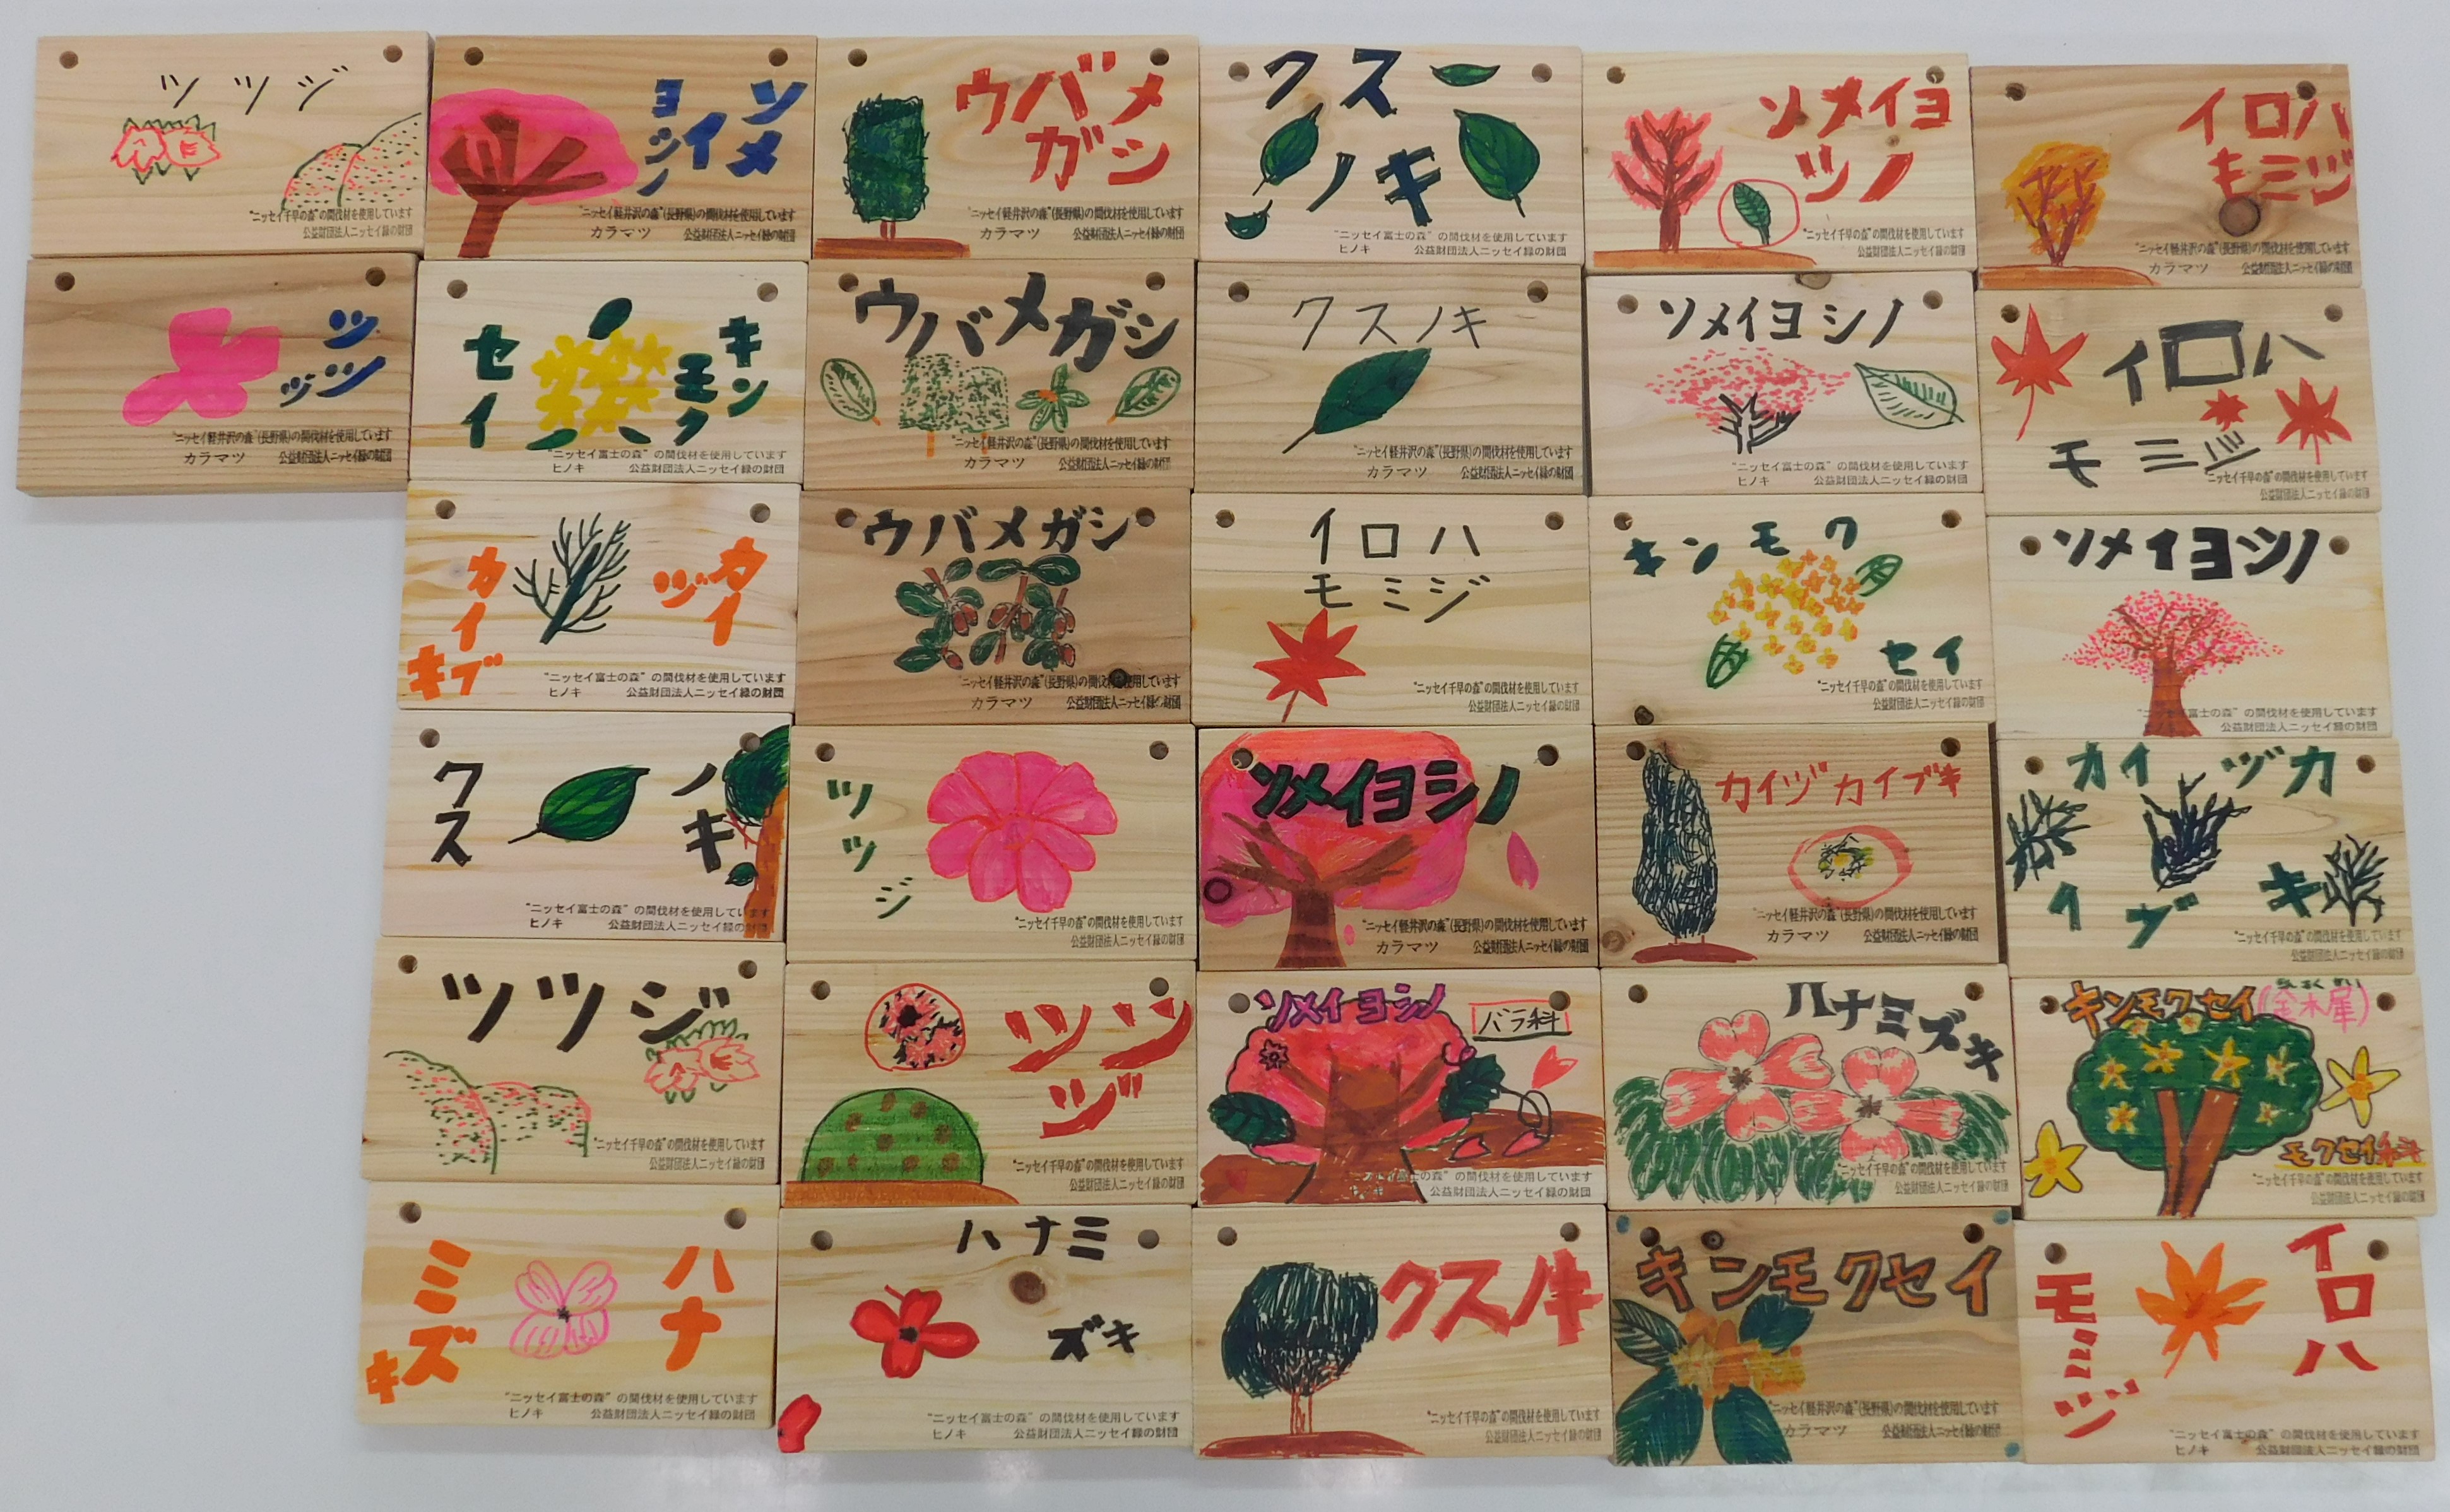 ツ ツ ジ
"ニッセイ千早の森"の間伐材を使用しています
公益財団法人ニッセイ緑の財団
ソメ
イ
ヨシノ
"ニッセイ軽井沢の森"(長野県)の間伐材を使用しています
カラマツ 公益財団法人ニッセイ緑の財団
ウバメ
ガシ
"ニッセイ軽井沢の森"(長野県)の間伐材を使用しています
カラマツ 公益財団法人ニッセイ緑の財団
クス
ノキ
"ニッセイ富士の森"の間伐材を使用しています
ヒノキ 公益財団法人ニッセイ緑の財団
ソメイヨ
シノ
"ニッセイ千早の森"の間伐材を使用しています
公益財団法人ニッセイ緑の財団
イロハ
モミジ
"ニッセイ軽井沢の森"(長野県)の間伐材を使用しています
カラマツ 公益財団法人ニッセイ緑の財団
ツ
ツジ
"ニッセイ軽井沢の森"(長野県)の間伐材を使用しています
カラマツ 公益財団法人ニッセイ緑の財団
キン
モク
セイ
"ニッセイ富士の森"の間伐材を使用しています
ヒノキ 公益財団法人ニッセイ緑の財団
ウバメガシ
"ニッセイ軽井沢の森"(長野県)の間伐材を使用しています
カラマツ 公益財団法人ニッセイ緑の財団
クスノキ
"ニッセイ軽井沢の森"(長野県)の間伐材を使用しています
カラマツ 公益財団法人ニッセイ緑の財団
ソメイヨシノ
"ニッセイ富士の森"の間伐材を使用しています
ヒノキ 公益財団法人ニッセイ緑の財団
イロハ
モミジ
"ニッセイ千早の森"の間伐材を使用しています
公益財団法人ニッセイ緑の財団
カイ
ヅ
カイ
ブキ
"ニッセイ富士の森"の間伐材を使用しています
ヒノキ 公益財団法人ニッセイ緑の財団
ウバメガシ
"ニッセイ軽井沢の森"(長野県)の間伐材を使用しています
カラマツ 公益財団法人ニッセイ緑の財団
イロハ
モミジ
"ニッセイ千早の森"の間伐材を使用しています
公益財団法人ニッセイ緑の財団
キンモク
セイ
"ニッセイ千早の森"の間伐材を使用しています
公益財団法人ニッセイ緑の財団
ソメイヨシノ
"ニッセイ富士の森"の間伐材を使用しています
ヒノキ 公益財団法人ニッセイ緑の財団
クス
ノキ
"ニッセイ富士の森"の間伐材を使用しています
ヒノキ 公益財団法人ニッセイ緑の財団
ツツジ
"ニッセイ千早の森"の間伐材を使用しています
公益財団法人ニッセイ緑の財団
ソメイヨシノ
"ニッセイ軽井沢の森"(長野県)の間伐材を使用しています
カラマツ 公益財団法人ニッセイ緑の財団
カイヅカイブキ
"ニッセイ軽井沢の森"(長野県)の間伐材を使用しています
カラマツ 公益財団法人ニッセイ緑の財団
カイヅカ
イブキ
"ニッセイ千早の森"の間伐材を使用しています
公益財団法人ニッセイ緑の財団
ツツジ
"ニッセイ千早の森"の間伐材を使用しています
公益財団法人ニッセイ緑の財団
ツツ
ジ
"ニッセイ千早の森"の間伐材を使用しています
公益財団法人ニッセイ緑の財団
ソメイヨシノ
バラ科
"ニッセイ富士の森"の間伐材を使用しています
ヒノキ 公益財団法人ニッセイ緑の財団
ハナミズキ
"ニッセイ千早の森"の間伐材を使用しています
公益財団法人ニッセイ緑の財団
キンモクセイ(金木犀)
モクセイ科
"ニッセイ千早の森"の間伐材を使用しています
公益財団法人ニッセイ緑の財団
ハナ
ミズキ
"ニッセイ富士の森"の間伐材を使用しています
ヒノキ 公益財団法人ニッセイ緑の財団
ハナミ
ズキ
"ニッセイ富士の森"の間伐材を使用しています
ヒノキ 公益財団法人ニッセイ緑の財団
クスノキ
"ニッセイ千早の森"の間伐材を使用しています
公益財団法人ニッセイ緑の財団
キンモクセイ
"ニッセイ軽井沢の森"(長野県)の間伐材を使用しています
カラマツ 公益財団法人ニッセイ緑の財団
イロハ
モミジ
"ニッセイ富士の森"の間伐材を使用しています
ヒノキ 公益財団法人ニッセイ緑の財団